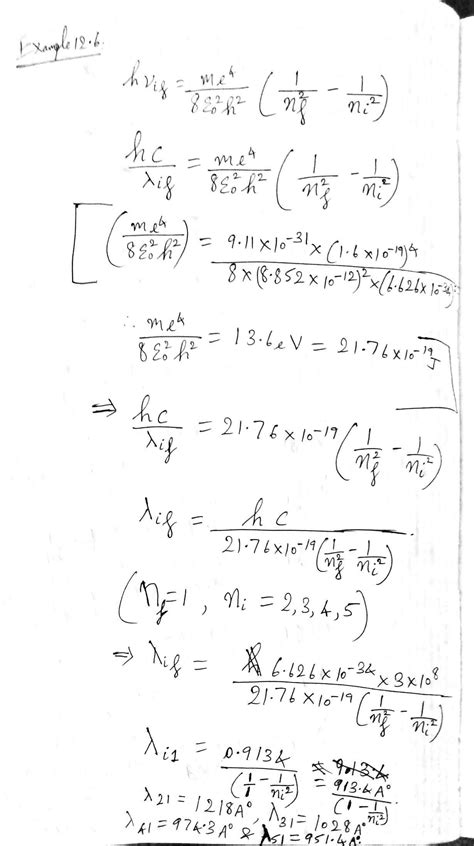 Example 12.6.
hν_if = me⁴/8ε₀²h² (1/n_f² − 1/n_i²)
hc/λ_if = me⁴/8ε₀²h² (1/n_f² − 1/n_i²)
[(me⁴/8ε₀²h²) = 9.11×10⁻³¹×(1.6×10⁻¹⁹)4/8×(8.852×10⁻¹²)²×(6.626×10⁻³⁴)²
∴ me⁴/8ε₀²h² = 13.6eV = 21.76×10⁻¹⁹J]
⇒ hc/λ_if = 21.76×10⁻¹⁹ (1/n_f² − 1/n_i²)
λ_if = hc/21.76×10⁻¹⁹(1/n_f² − 1/n_i²).
(n_f=1, n_i = 2,3,4,5)
⇒ λ_if = 6.626×10⁻³⁴×3×10⁸/21.76×10⁻¹⁹(1/n_f² − 1/n_i²)
λ_i1 = 0.9134/(1/1 − 1/n_i²) = 913.4A°/(1 − 1/n_i²).
λ21 = 1218A°, λ31 = 1028A°
λ41 = 974.3A° & λ51 = 951.4A°